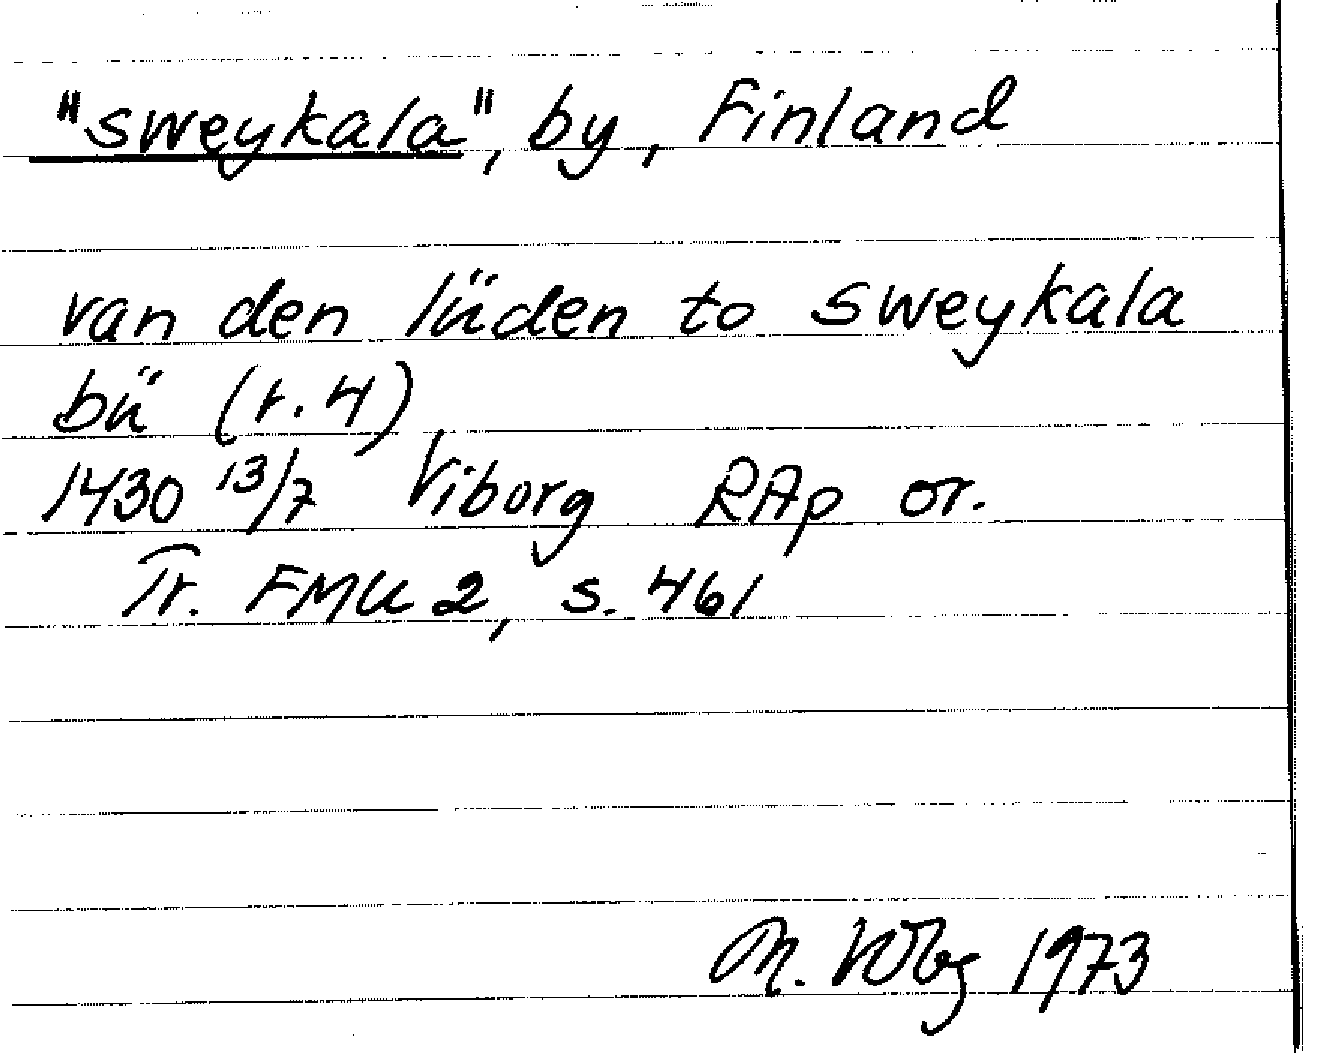 "sweykala", by, Finland
van den lüden to sweykala
bü (r. 4)
1430 13/7 Viborg RAp or.
Tr. FMU 2, s. 461
M. 1973